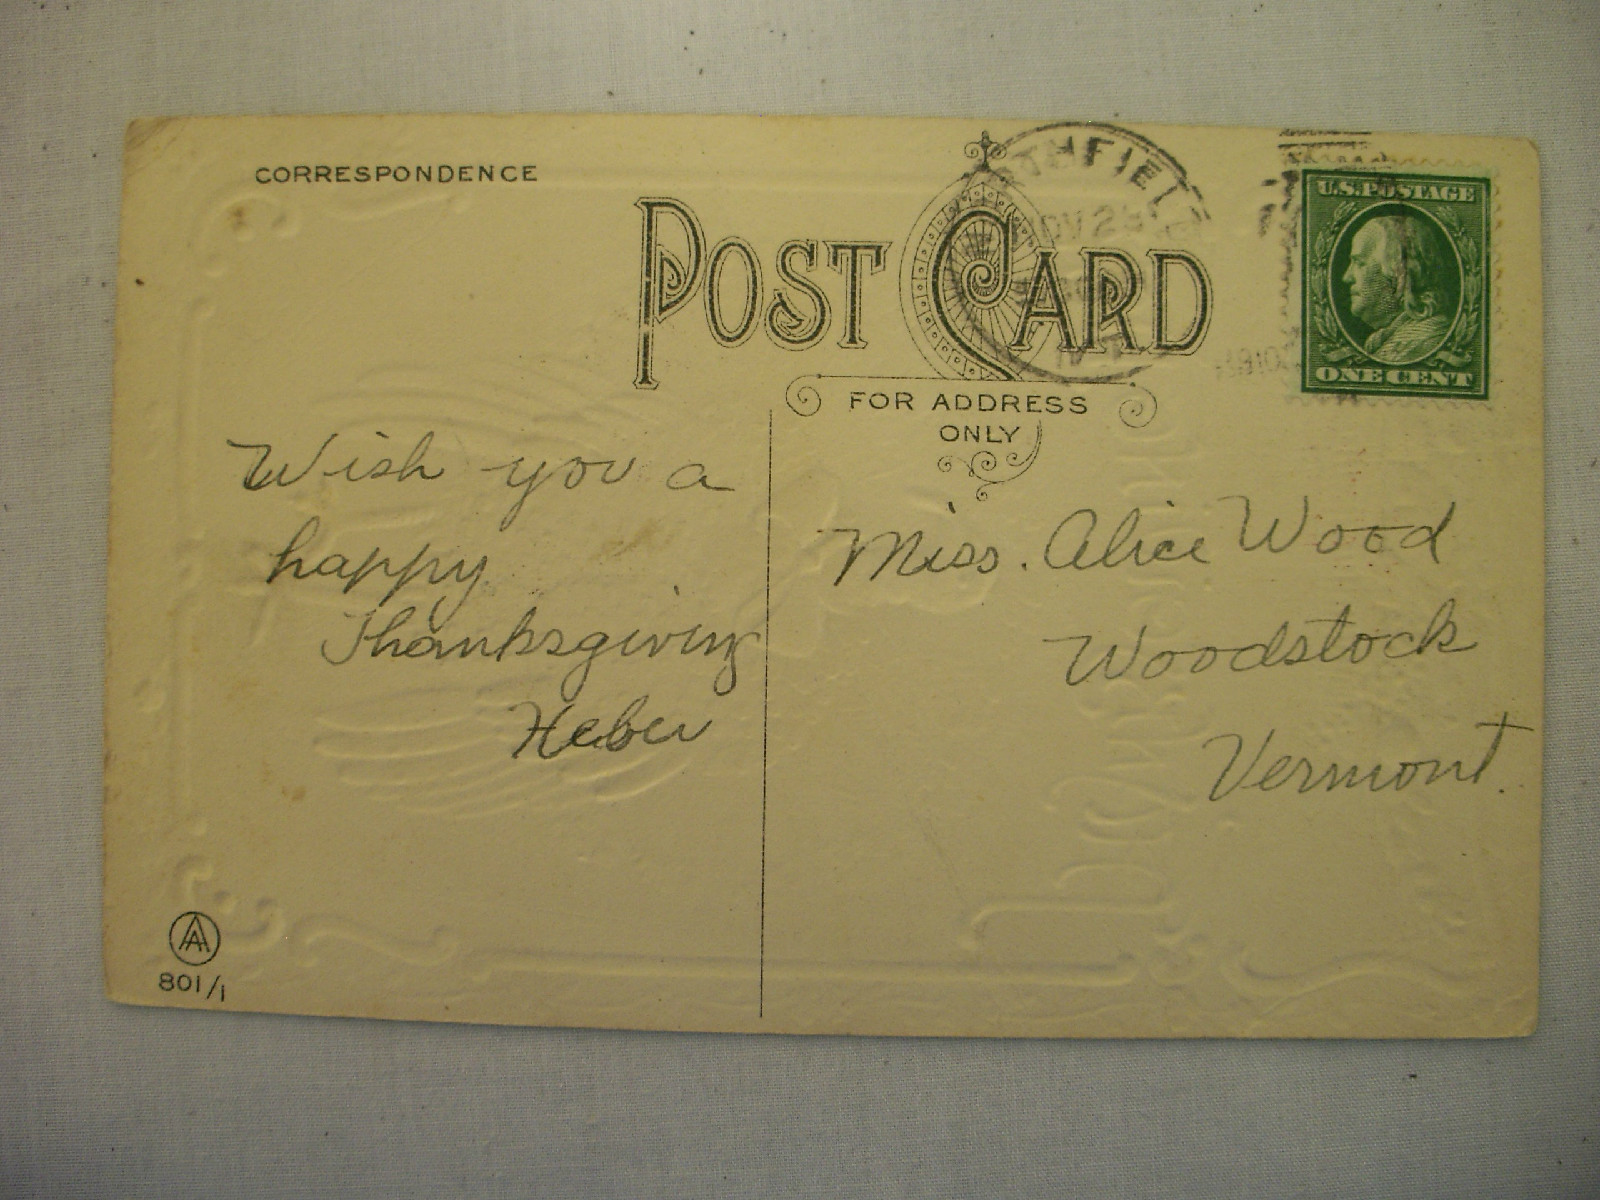 CORRESPONDENCE
POST CARD
THFIEL
U.S. POSTAGE
ONE CENT
FOR ADDRESS
ONLY
Wish you a
happy
Thanksgiving
Heber
Miss. Alice Wood
Woodstock
Vermont.
AA
801/1